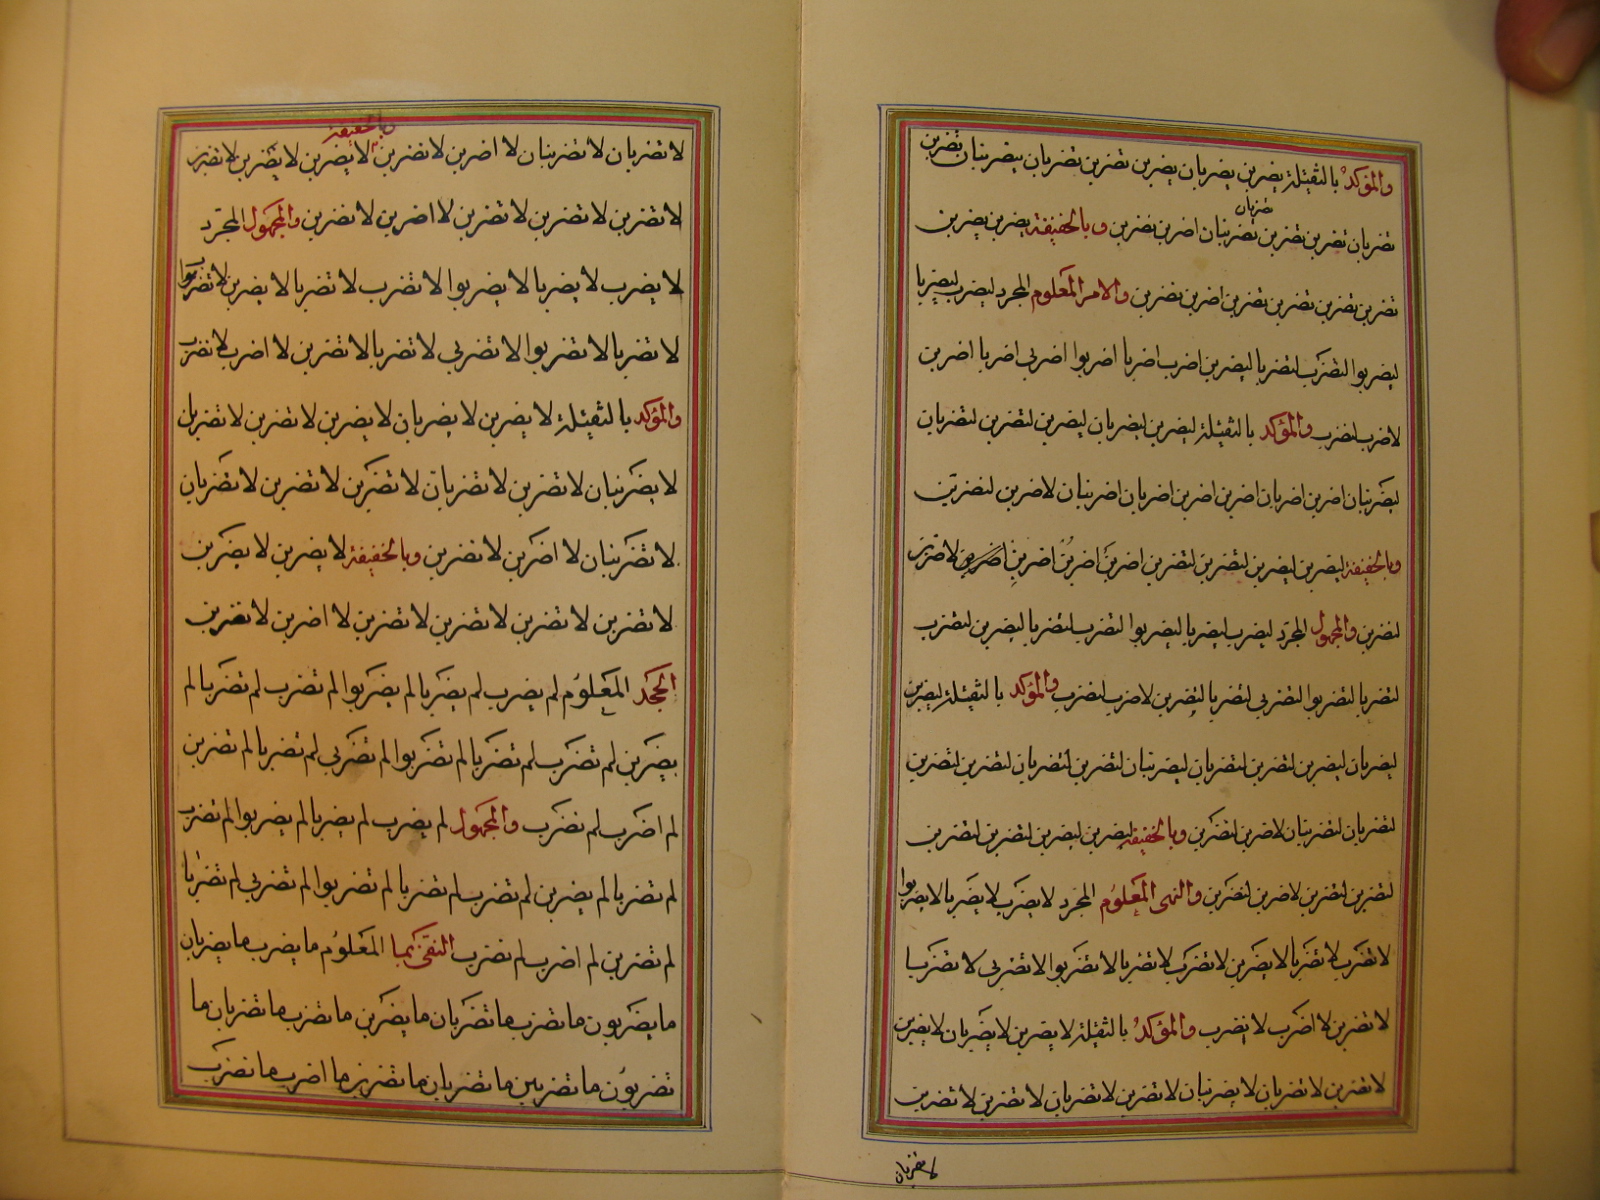 والمؤكد بالثقيلة يضربن يضربان يضربن تضربن تضربان يضربنان تضربن
تضربان تضربن تضربن تضربنان اضربن نضربن وبالخفيفة يضربن يضربن
تضربان
تضربن تضربن تضربن تضربن اضربن نضربن والامر المعلوم المجرد ليضرب ليضربا
ليضربوا لتضرب لتضربا ليضربن اضرب اضربا اضربوا اضربى اضربا اضربن
لاضرب لنضرب والمؤكد بالثقيلة ليضربن ليضربان ليضربن لتضربن لتضربان
ليضربنان اضربن اضربان اضربن اضربن اضربان اضربنان لاضربن لنضربن
وبالخفيفة ليضربن ليضربن لتضربن لتضربن اضربن اضربن اضربن لاضربن
لنضربن والمجهول المجرد ليضرب ليضربا ليضربوا لتضرب لتضربا ليضربن لتضرب
لتضربا لتضربوا لتضربى لتضربا لتضربن لاضرب لنضرب والمؤكد بالثقيلة ليضربن
ليضربان ليضربن لتضربن لتضربان ليضربنان لتضربن لتضربان لتضربن لتضربن
لتضربان لتضربنان لاضربن لنضربن وبالخفيفة ليضربن ليضربن لتضربن لتضربن
لتضربن لتضربن لاضربن لنضربن والنهى المعلوم المجرد لا يضرب لا يضربا لا يضربوا
لا تضرب لا تضربا لا يضربن لا تضرب لا تضربا لا تضربوا لا تضربى لا تضربا
لا تضربن لا اضرب لا نضرب والمؤكد بالثقيلة لا يضربن لا يضربان لا يضربن
لا تضربن لا تضربان لا يضربنان لا تضربن لا تضربان لا تضربن لا تضربن
لا تضربان
لا تضربان لا تضربنان لا اضربن لا نضربن لا يضربن لا يضربن لا تضربن
وبالخفيفة
لا تضربن لا تضربن لا تضربن لا اضربن لا نضربن والمجهول المجرد
لا يضرب لا يضربا لا يضربوا لا تضرب لا تضربا لا يضربن لا تضربوا
لا تضربا لا تضربوا لا تضربى لا تضربا لا تضربن لا اضرب لا نضرب
والمؤكد بالثقيلة لا يضربن لا يضربان لا يضربن لا تضربن لا تضربان
لا يضربنان لا تضربن لا تضربان لا تضربن لا تضربن لا تضربان
لا تضربنان لا اضربن لا نضربن وبالخفيفة لا يضربن لا يضربن
لا تضربن لا تضربن لا تضربن لا تضربن لا اضربن لا نضربن
الجحد المعلوم لم يضرب لم يضربا لم يضربوا لم تضرب لم تضربا لم
يضربن لم تضرب لم تضربا لم تضربوا لم تضربى لم تضربا لم تضربن
لم اضرب لم نضرب والمجهول لم يضرب لم يضربا لم يضربوا لم تضرب
لم تضربا لم يضربن لم تضرب لم تضربا لم تضربوا لم تضربى لم تضربا
لم تضربن لم اضرب لم نضرب النفى بما المعلوم ما يضرب ما يضربان
ما يضربون ما تضرب ما تضربان ما يضربن ما تضرب ما تضربان ما
تضربون ما تضربين ما تضربان ما تضربن ما اضرب ما نضرب